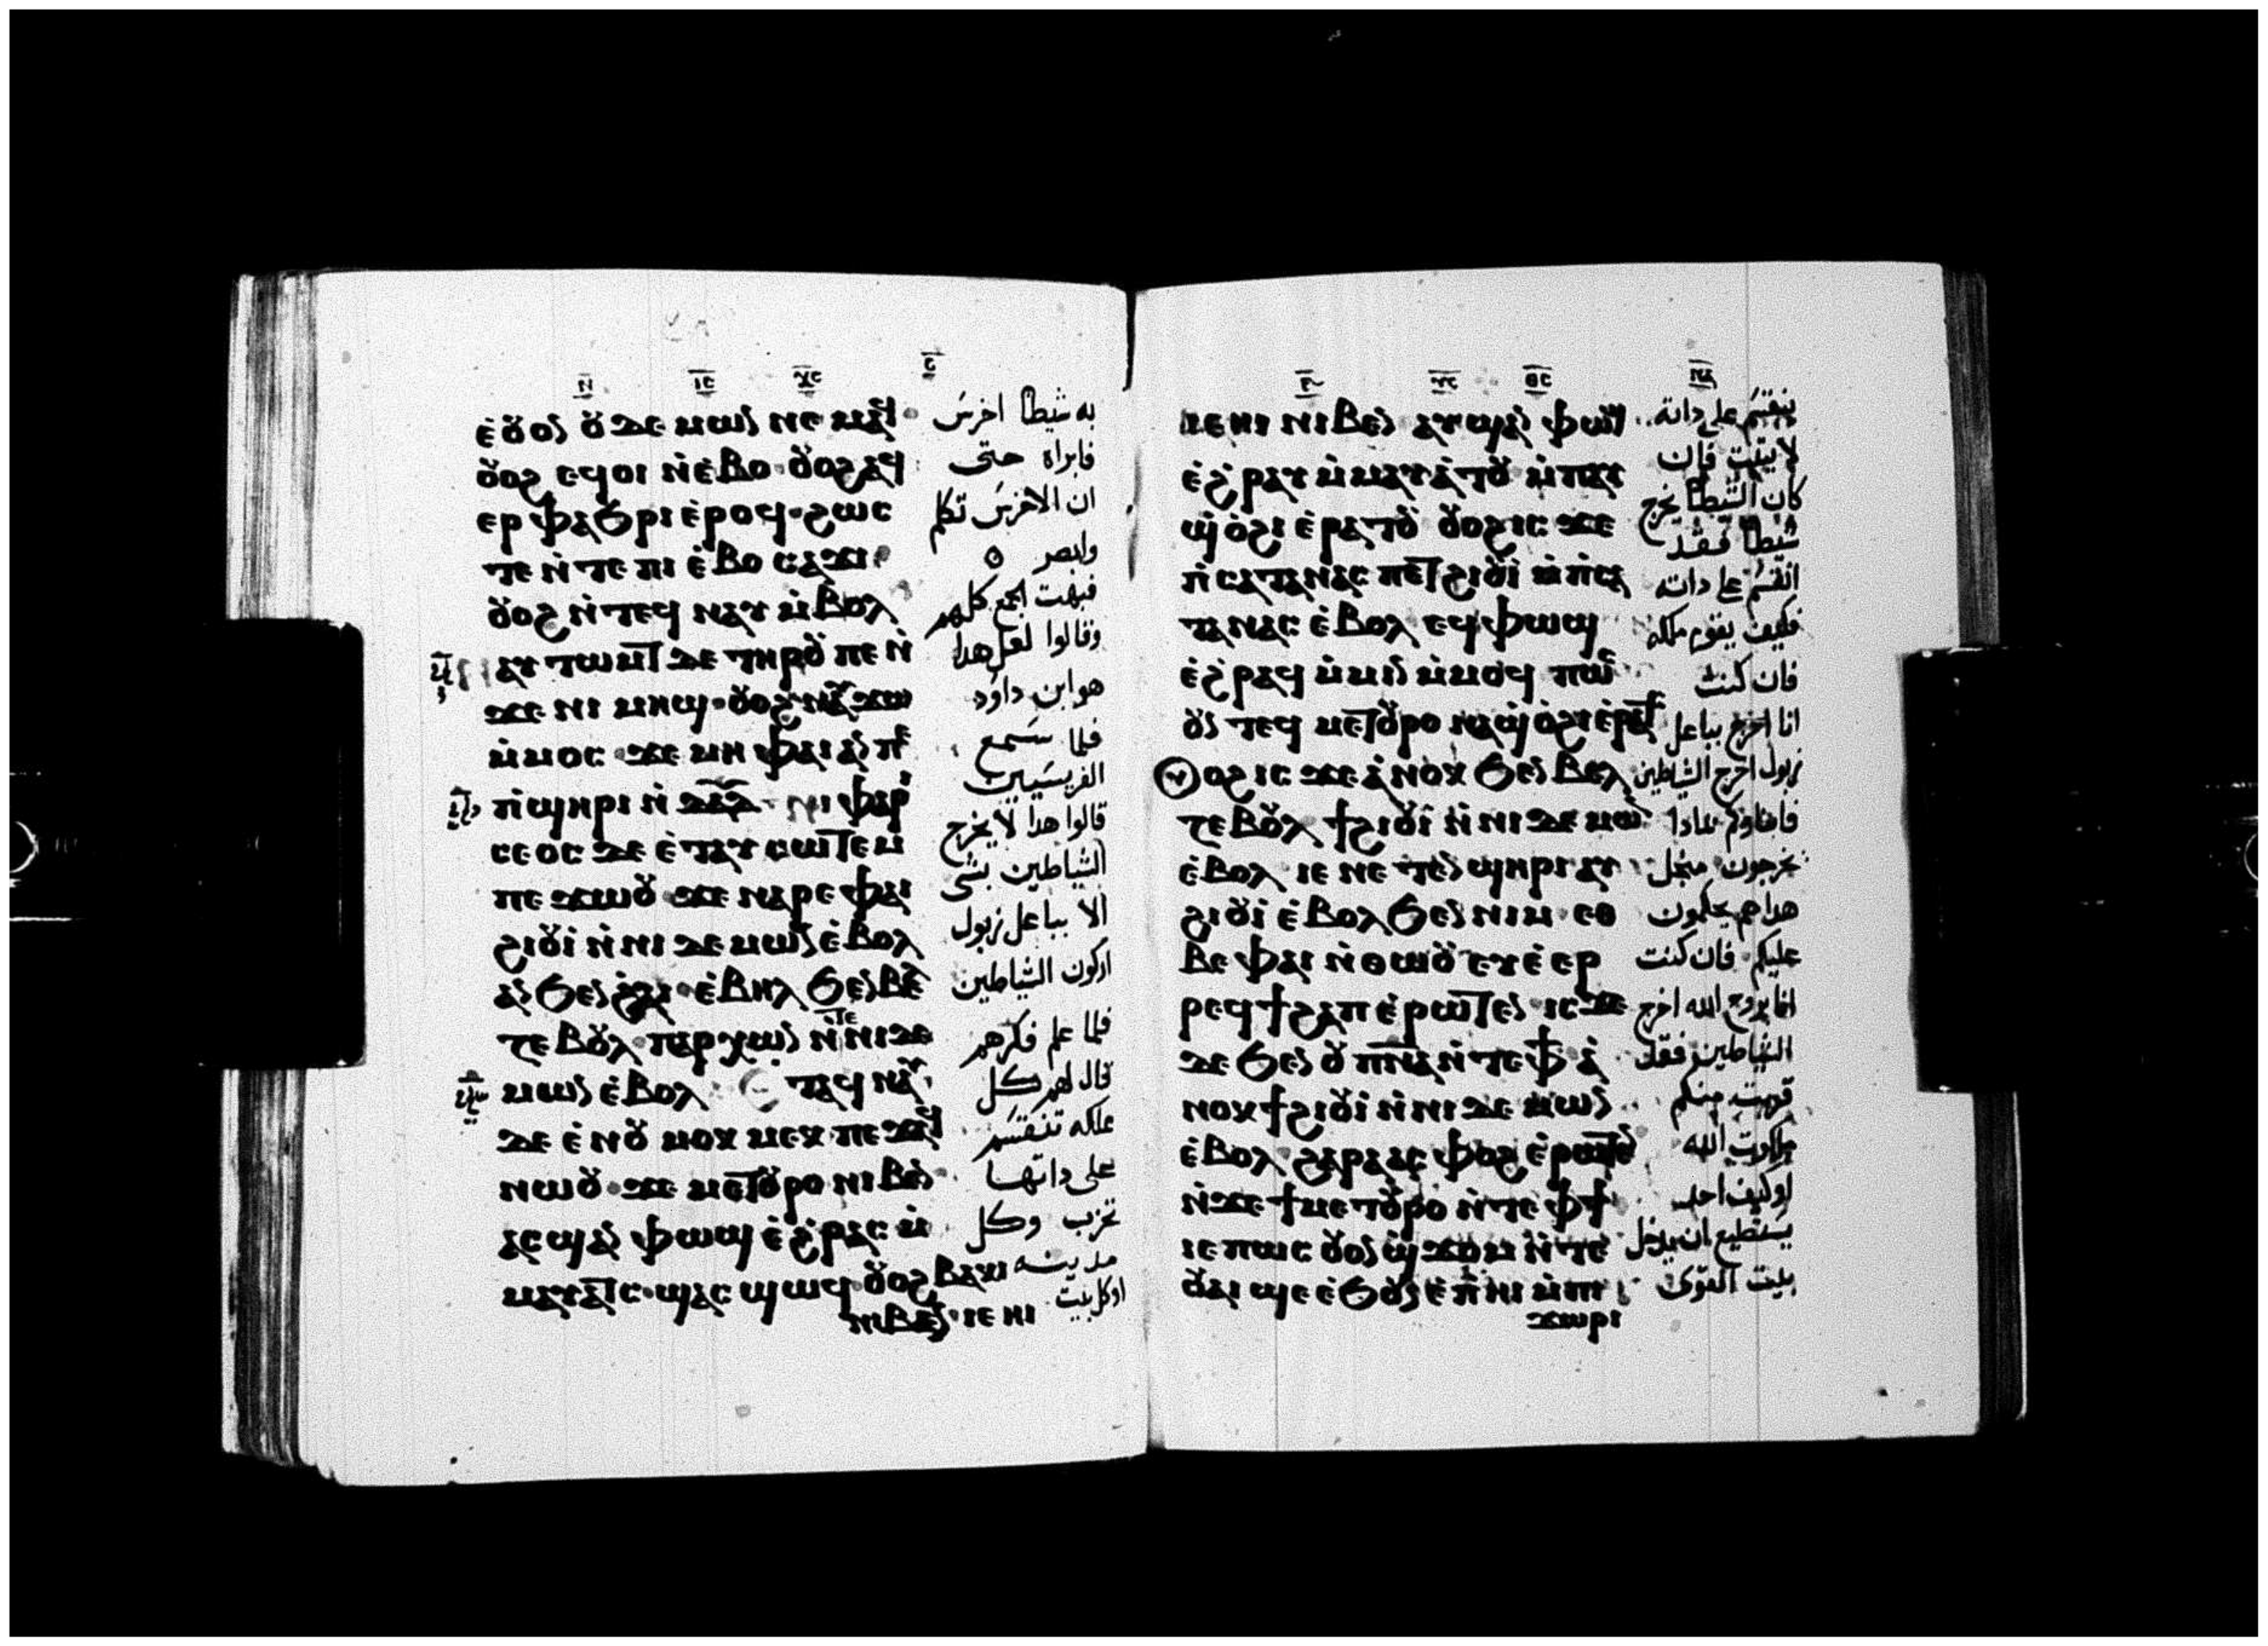 ⲉ̀ⲟ̆ⲟⲛ ⲟ̆ ⲇⲉⲙⲱⲛ ⲛⲉⲙⲁϥ
ⲟ̆ⲟϩ ⲉϥⲟⲓ ⲛ̀ⲉ̀ⲃⲟ ⲟ̆ⲟϩ ⲁϥ
ⲉⲣ ⲫⲁϧⲣⲓ ⲉ̀ⲣⲟϥ ϩⲱⲥ
ⲧⲉ ⲛ̀ⲧⲉ ⲡⲓ ⲉ̀ⲃⲟ ⲥⲁϫⲓ
ⲟ̆ⲟϩ ⲛ̀ⲧⲉϥ ⲛⲁⲩ ⲙ̀ⲃⲟⲗ
ⲁⲩ ⲧⲱⲙⲧ ⲇⲉ ⲧⲏⲣⲟ̆ ⲡⲉ ⲛ̀
ϫⲉ ⲛⲓ ⲙⲏϣ ⲟ̆ⲟϩ ⲛⲁⲩ ϫⲱ
ⲙ̀ⲙⲟⲥ ϫⲉ ⲙⲏ ⲫⲁⲓ ⲁⲛ ⲡⲉ
ⲡ̀ϣⲏⲣⲓ ⲛ̀ ⲇⲁⲇ ⲛⲓ ⲫⲁⲣ
ⲥⲉⲟⲥ ⲇⲉ ⲉ̀ⲧⲁⲩ ⲥⲱⲧⲉⲙ
ⲡⲉϫⲱⲟ̆ ϫⲉ ⲛⲁⲣⲉ ⲫⲁⲓ
ϩⲓⲟ̆ⲓ̀ ⲛ̀ⲛⲓ ⲇⲉⲙⲱⲛ ⲉ̀ⲃⲟⲗ
ⲁⲛ ϧⲉⲛ ϩ̀ⲗⲓ ⲉ̀ⲃⲏⲗ ϧⲉⲛ ⲃⲉ
ⲍⲉⲃⲟ̆ⲗ ⲡⲁⲣⲭⲱⲛ ⲛ̀ⲧⲉ ⲛⲓ ⲇⲉ
ⲙⲱⲛ ⲉ̀ⲃⲟⲗ ⲧⲁϥ ⲛⲁⲩ
ⲇⲉ ⲉ̀ⲛⲟ̆ ⲙⲟⲕ ⲙⲉⲕ ⲡⲉϫⲁϥ
ⲛⲱⲟ̆ ϫⲉ ⲙⲉⲧⲟ̆ⲣⲟ ⲛⲓⲃⲉⲛ
ⲁⲥϣⲁⲛ ⲫⲱϣ ⲉ̀ϩ̀ⲣⲁⲥ ⲙ̀
ⲙⲁⲩⲁⲧⲥ ϣⲁⲥ ϣⲱϥ ⲟ̆ⲟϩ ⲃⲁⲕⲓ
ⲛⲓⲃⲉⲛ ⲓⲉ ⲏⲓ
به شيطان اخرس
فابراه حتى
ان الاخرس تكلم
وابصر
فبهت الجمع كلهم
وقالوا لعل هدا
هو ابن داود
فلما سمع
الفريسيين
قالوا هدا لا يخرج
الشياطين بشي
الا بباعل زبول
اركون الشياطين
فلما علم فكرهم
قال لهم كل
مملكه تنقسم
على داتها
تخرب وكل
مدينه
او كل بيت
ⲓⲉ ⲏⲓ ⲛⲓⲃⲉⲛ ⲁⲩϣⲁⲛ ⲫⲱϣ
ⲉ̀ϩ̀ⲣⲁⲩ ⲙ̀ⲙⲁⲩⲁ̀ⲧⲟ̆ ⲙ̀ⲡⲁⲩ
ϣ̀ ⲟ̀ϩⲓ ⲉ̀ⲣⲁⲧⲟ̆ ⲟ̆ⲟϩ ⲓⲥ ϫⲉ
ⲡ̀ⲥⲁⲧⲁⲛⲁⲥ ⲡⲉⲧϩⲓⲟ̆ⲓ̀ ⲙ̀ⲡ̀ⲥⲁ
ⲧⲁⲛⲁⲥ ⲉ̀ⲃⲟⲗ ⲉϥⲫⲱϣ
ⲉ̀ϩ̀ⲣⲁϥ ⲙ̀ⲙⲓⲛ ⲙ̀ⲙⲟϥ ⲡⲱⲥ
ⲟ̆ⲛ ⲧⲉϥ ⲙⲉⲧⲟ̆ⲣⲟ ⲛⲁϣ̀ ⲟ̀ϩⲓ ⲉ̀ⲣⲁⲧ
ⲟϩ ⲓⲥ ϫⲉ ⲁ̀ⲛⲟⲕ ϧⲉⲛ ⲃⲉⲗ
ⲍⲉⲃⲟ̆ⲗ ϯϩⲓⲟ̆ⲓ̀ ⲛ̀ⲛⲓ ⲇⲉⲙⲱⲛ
ⲉ̀ⲃⲟⲗ ⲓⲉ ⲛⲉⲧⲉⲛ ϣⲏⲣⲓ ⲁⲩ
ϩⲓⲟ̆ⲓ̀ ⲉ̀ⲃⲟⲗ ϧⲉⲛ ⲛⲓⲙ ⲉⲑ
ⲃⲉ ⲫⲁⲓ ⲛ̀ⲑⲱⲟ̆ ⲉⲩⲉ̀ⲉⲣ
ⲣⲉϥϯϩⲁⲡ ⲉ̀ⲣⲱⲧⲉⲛ ⲓⲥϫⲉ
ⲇⲉ ϧⲉⲛ ⲟ̆ ⲡⲛⲁ ⲛ̀ⲧⲉ ⲫϯ ⲁ̀
ⲛⲟⲕ ϯϩⲓⲟ̆ⲓ̀ ⲛ̀ⲛⲓ ⲇⲉⲙⲱⲛ
ⲉ̀ⲃⲟⲗ ϩⲁⲣⲁ ⲁⲥ ⲫⲟϩ ⲉ̀ⲣⲱⲧⲉⲛ
ⲛ̀ϫⲉ ϯⲙⲉⲧⲟ̆ⲣⲟ ⲛ̀ⲧⲉ ⲫϯ
ⲓⲉ ⲡⲱⲥ ⲟ̆ⲟⲛ ϣ̀ϫⲟⲙ ⲛ̀ⲧⲉ
ⲟ̆ⲁⲓ ϣⲉ ⲉ̀ϧⲟ̆ⲛ ⲉ̀ⲡ̀ⲏⲓ ⲙ̀ⲡⲓ
ϫⲱⲣⲓ
ينقسم على داته
لا يثبت فان
كان الشيطان يخرج
شيطان فقد
انقسم على داته
فكيف يقوم ملكه
فان كنت
انا اخرج بباعل
زبول اخرج الشياطين
فابناوكم بمادا
يخرجون من اجل
هدا هم يحكمون
عليكم فان كنت
انا بروح الله اخرج
الشياطين فقد
قربت منكم
ملكوت الله
او كيف احد
يستطيع ان يدخل
بيت القوى